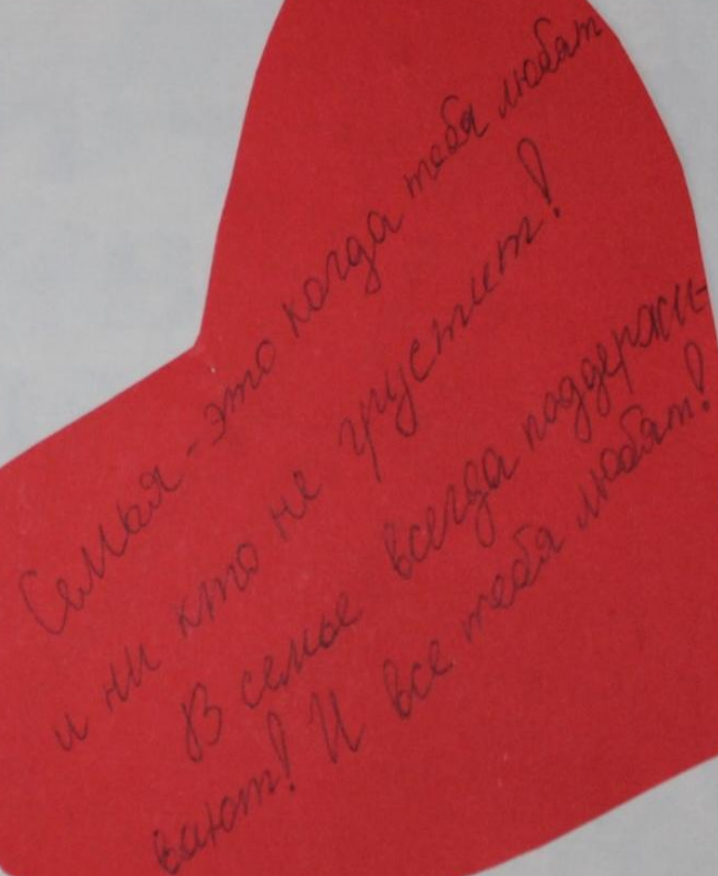 Семья - это когда тебя любят
и ни кто не грустит!
В семье всегда поддержи-
вают! И все тебя любят!